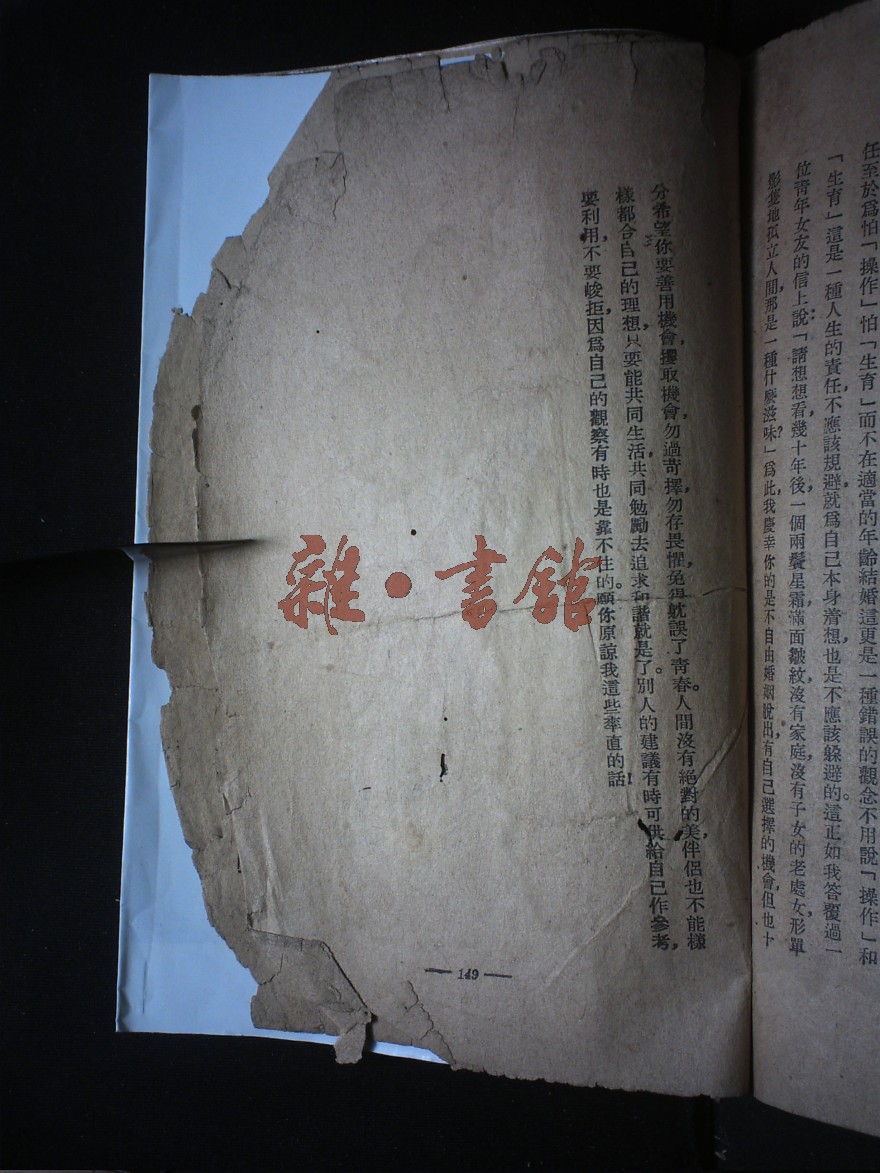 任至於爲怕「操作」怕「生育」而不在適當的年齡結婚這更是一種錯誤的觀念不用說「操作」和
「生育」這是一種人生的責任，不應該規避就爲自己本身着想，也是不應該躲避的。這正如我答覆過一
位青年女友的信上說：「請想想看，幾十年後，一個兩鬢星霜，滿面皺紋，沒有家庭，沒有子女的老處女，形單
影隻地孤立人間，那是一種什麼滋味？」爲此，我慶幸你的是不自由婚姻脫出，有自己選擇的機會，但也十
分希望你要善用機會，攫取機會，勿過苛擇，勿存畏懼，免得躭誤了青春。人間沒有絕對的美伴侶，也不能樣
樣都合自己的理想，只要能共同生活，共同勉勵，去追求和諧就是了。別人的建議有時可供給自己作參考，
要利用，不要峻拒，因爲自己的觀察有時也是靠不住的。願你原諒我這些率直的話！
— 149 —
雜·書館